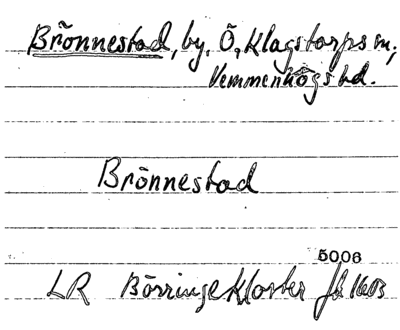 Brönnestad, by. Ö. Klagstorps sn,
Vemmenhögs hd.
Brönnestad
5006
LR Börringekloster jb 1603